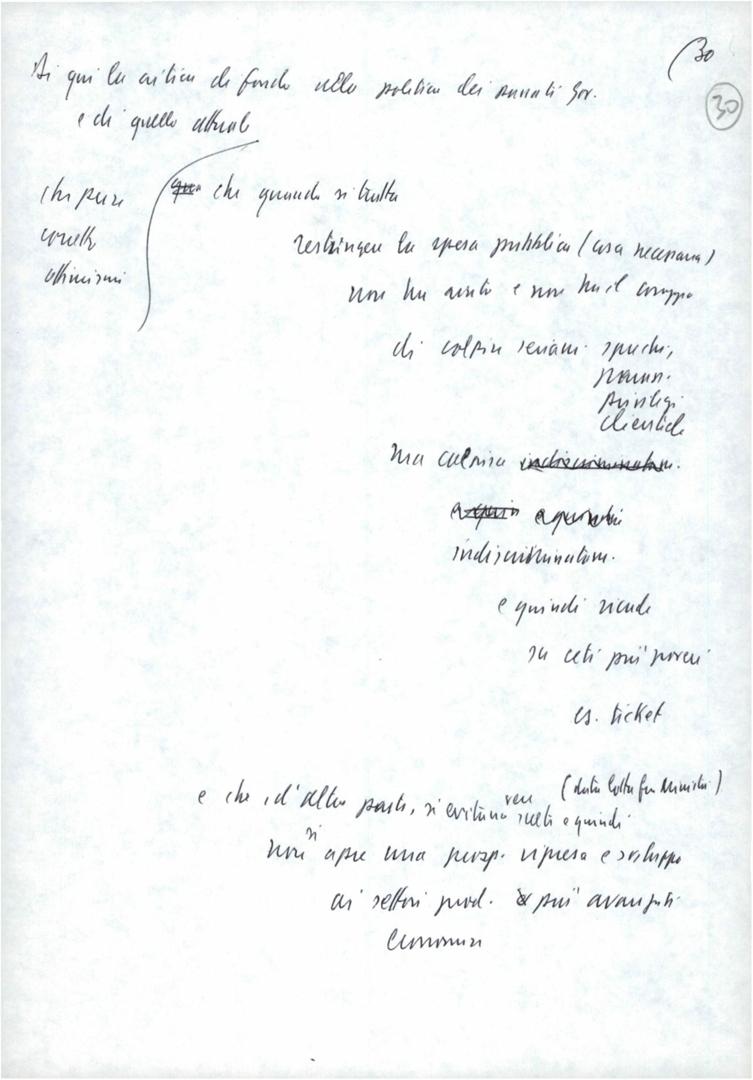 (30
30
Di qui la critica di fondo alla politica dei passati Gov.
e di quello attuale
che pure
corretto
che quando si tratta
restringere la spesa pubblica (cosa necessaria)
non ha avuto e non ha il coraggio
di colpire seriam. sprechi,
privilegi
clientele
ma colpisce indiscriminatam.
indiscriminatam.
e quindi ricade
su ceti più poveri
es. ticket
e che, d'altra parte, si evitano vere scelte e quindi (data lotta fra Ministri)
non si apre una prosp. ripresa e sviluppo
ai settori prod. più avanzati